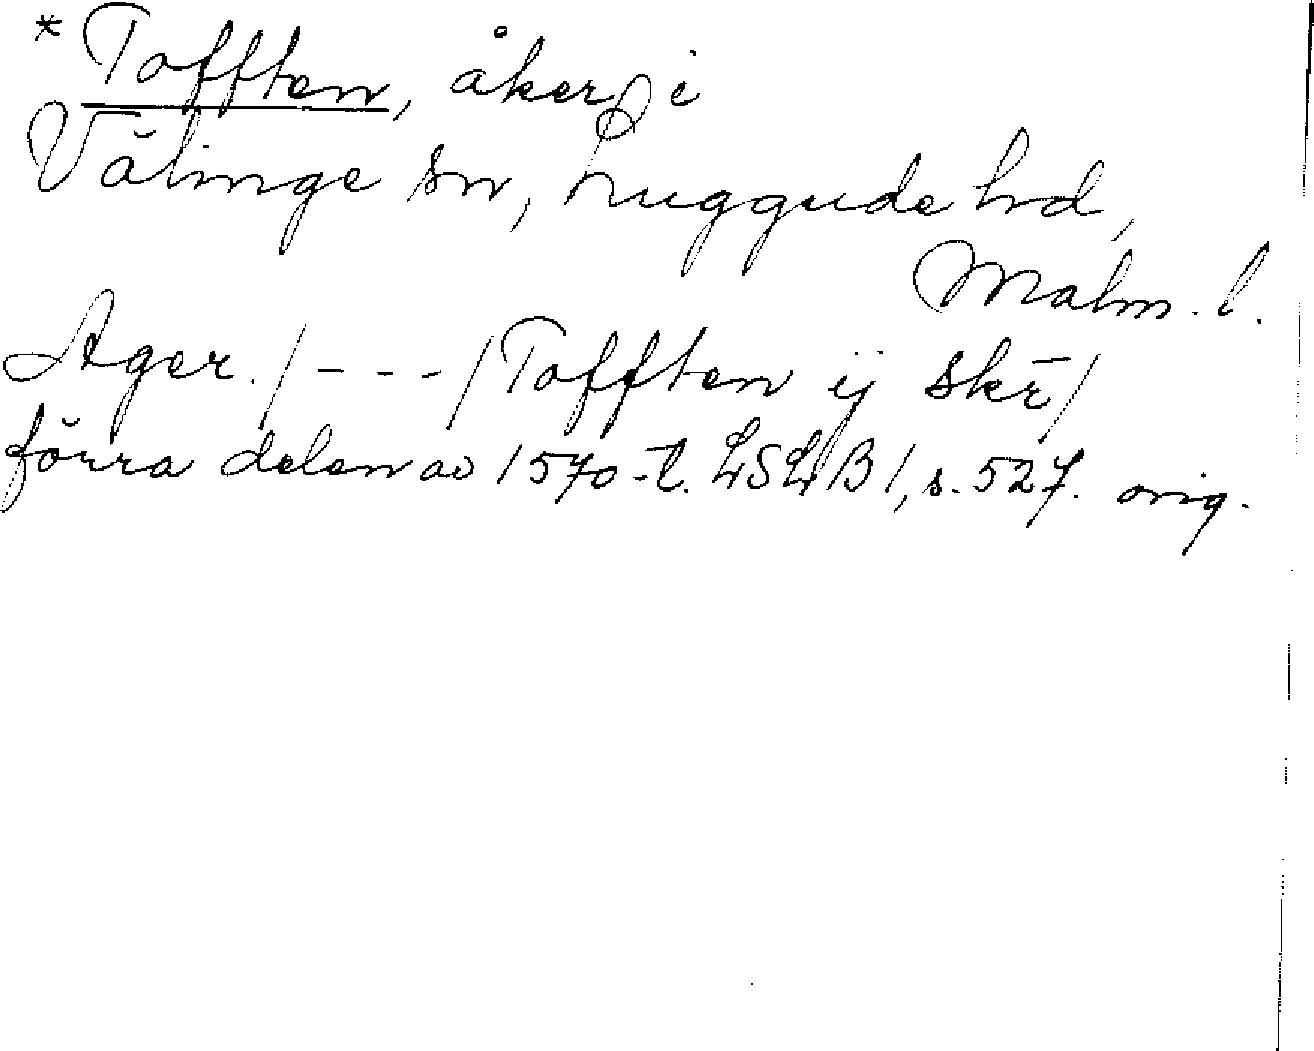 * Tofften, åker, i
Välinge sn, Luggude hd,
Malm. l.
Ager. / - - - / Tofften ij skr̄ /
förra delen av 1570-t. LSLB 1, s. 527. orig.